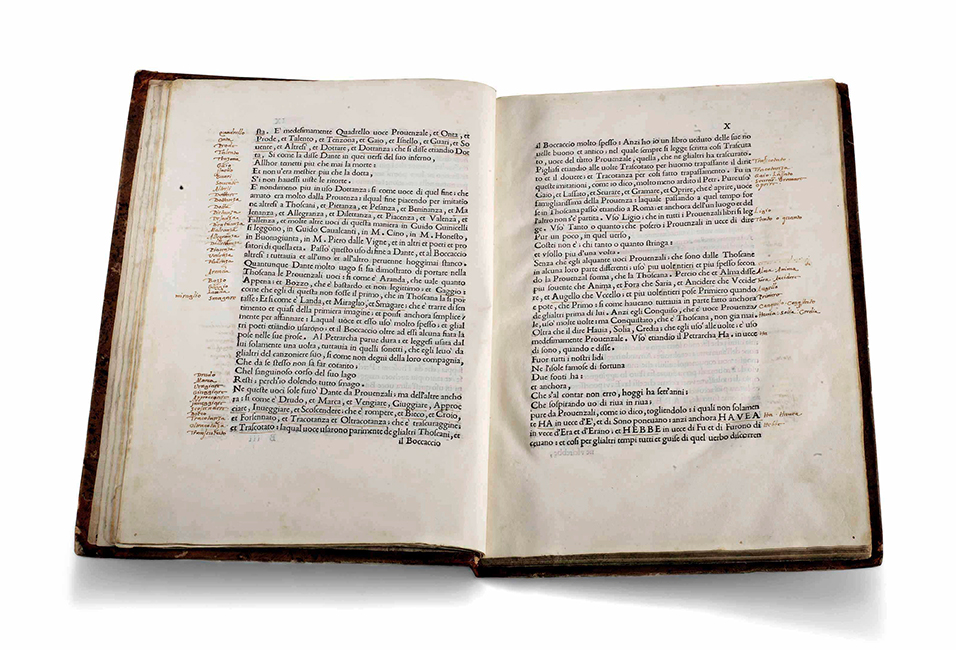 sta. E' medesimamente Quadrello uoce Prouenzale, et Onta, et
Prode, et Talento, et Tenzona, et Gaio, et Isnello, et Guari, et So
uente, et Altresi, et Dottare, et Dottanza: che si disse etiandio Dot
ta, Si come la disse Dante in quei uersi del suo inferno,
Allhor temetti piu che mai la morte:
Et non u'era mestier piu che la dotta,
S'i non hauessi uiste le ritorte.
E' nondimeno piu in uso Dottanza; si come uoce di quel fine; che
amato era molto dalla Prouenza: ilqual fine piacendo per imitatio
ne altresi a Thoscani, et Pietanza, et Pesanza, et Beninanza, et Ma
lenanza, et Allegranza, et Dilettanza, et Piacenza, et Valenza, et
Fallenza, et molte altre uoci di questa maniera in Guido Guinicelli
si leggono, in Guido Caualcanti, in M. Cino, in M. Honesto,
in Buonagiunta, in M. Piero dalle Vigne, et in altri et poeti et pro
satori di quella eta. Passo' questo uso di fine a Dante, et al Boccaccio
altresi: tuttauia et all'uno et all'altro peruenne hoggimai stanco.
Quantunque Dante molto uago si sia dimostrato di portare nella
Thoscana le Prouenzali uoci: si come e' Aranda, che uale quanto
Appena: et Bozzo, che e' bastardo et non legittimo: et Gaggio:
come che egli di questa non fosse il primo, che in Thoscana la si por
tasse: Et si come e' Landa, et Miraglio, et Smagare; che e' trarre di sen
timento et quasi della primiera imagine; et ponsi anchora semplice
mente per affannare: Laqual uoce et esso uso' molto spesso; et glial
tri poeti etiandio usarono: et il Boccaccio oltre ad essi alcuna fiata la
pose nelle sue prose. Al Petrarcha parue dura: et leggesi usata dal
lui solamente una uolta, tuttauia in quelli sonetti, che egli leuo' da
glialtri del canzoniere suo, si come non degni della loro compagnia,
Che da se stesso non sa far cotanto;
Chel sanguinoso corso del suo lago
Resti; perch'io dolendo tutto smago.
Ne queste uoci sole furo' Dante da Prouenzali: ma dell'altre ancho
ra; si come e' Drudo, et Marca, et Vengiare, Giuggiare, Approc
ciare, Inueggiare, et Scoscendere: che e' rompere, et Bieco, et Croio,
et Forsennato, et Tracotanza et Oltracotanza: che e' trascuraggine:
et Trascotato: laqual uoce usarono parimente de glialtri Thoscani, et
il Boccaccio
X
al Boccaccio molto spesso: Anzi ho io un libro ueduto delle sue no
uelle buono et antico; nel quale sempre si legge scritto cosi Trascuta
to, uoce del tutto Prouenzale, quella, che ne glialtri ha trascurato.
Pigliasi etiandio alle uolte Trascotato per huomo trapassante il diritto
et il douere: et Tracotanza per cosi fatto trapassamento. Fu in
queste imitationi, come io dico, molto meno ardito il Petr. Pure uso'
Gaio, et Lassato, et Sceurare, et Gramare, et Oprire, che e' aprire, uoce
famigliarissima della Prouenza: laquale passando a quel tempo for
se in Thoscana passo' etiandio a Roma: et anchora dell'un luogo et del
l'altro non s'e' partita. Vso' Ligio: che in tutti i Prouenzali libri si leg
ge. Vso' Tanto o quanto, che posero i Prouenzali in uece di dire
Pur un poco, in quel uerso,
Costei non e', chi tanto o quanto stringa:
et usollo piu d'una uolta.
Senza che egli alquante uoci Prouenzali; che sono dalle Thoscane
in alcuna loro parte differenti; uso' piu uolentieri et piu spesso secon
do la Prouenzal forma, che la Thoscana. Percio che et Alma disse
piu souente che Anima, et Fora che Saria, et Ancidere che Vccide
re, et Augello che Vccello; et piu uolentieri pose Primiero quando
e' pote, che Primo: si come haueano tuttauia in parte fatto anchora
de glialtri prima di lui. Anzi egli Conquiso, che e' uoce Prouenza
le, uso' molte uolte: ma Conquistato, che e' Thoscana, non gia mai.
Oltra che il dire Hauia, Solia, Credia; che egli uso' alle uolte; e' uso
medesimamente Prouenzale. Vso' etiandio il Petrarcha Ha, in uece
di sono, quando e' disse.
Fuor tutti i nostri lidi
Ne l'isole famose di fortuna
Due fonti ha:
et anchora,
Che s'al contar non erro, hoggi ha sett'anni;
Che sospirando uo di riua in riua;
pure da Prouenzali, come io dico, togliendolo: i quali non solamen
te HA in uece d'E', et di Sono poneuano; anzi anchora HAVEA
in uece d'Era et d'Erano; et HEBBE in uece di Fu et di Furono di
ceuano: et cosi per glialtri tempi tutti et guise di quel uerbo discorren